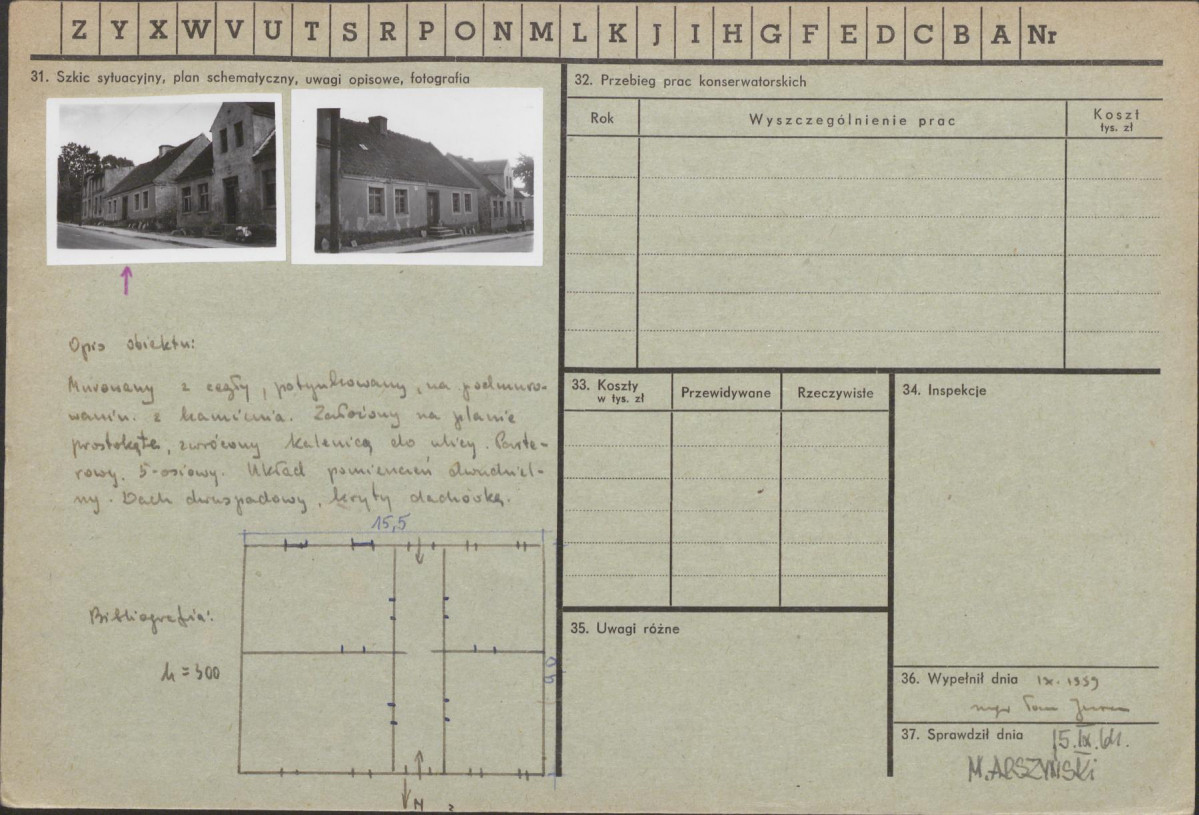 Z Y X W V U T S R P O N M L K J I H G F E D C B A Nr
31. Szkic sytuacyjny, plan schematyczny, uwagi opisowe, fotografia
Opis obiektu:
Murowany z cegły, potynkowany, na podmuro-
waniu z kamienia. Założony na planie
prostokąta, zwrócony kalenicą do ulicy. Parte-
rowy. 5-osiowy. Układ pomieszczeń dwudziel-
ny. Dach dwuspadowy, kryty dachówką.
15,5
Bibliografia:
h = 300
N
32. Przebieg prac konserwatorskich
Rok
Wyszczególnienie prac
Koszt
tys. zł
33. Koszty
w tys. zł
Przewidywane
Rzeczywiste
34. Inspekcje
35. Uwagi różne
36. Wypełnił dnia IX. 1959
mgr
37. Sprawdził dnia 15.IX.61.
M. ARSZYŃSKI